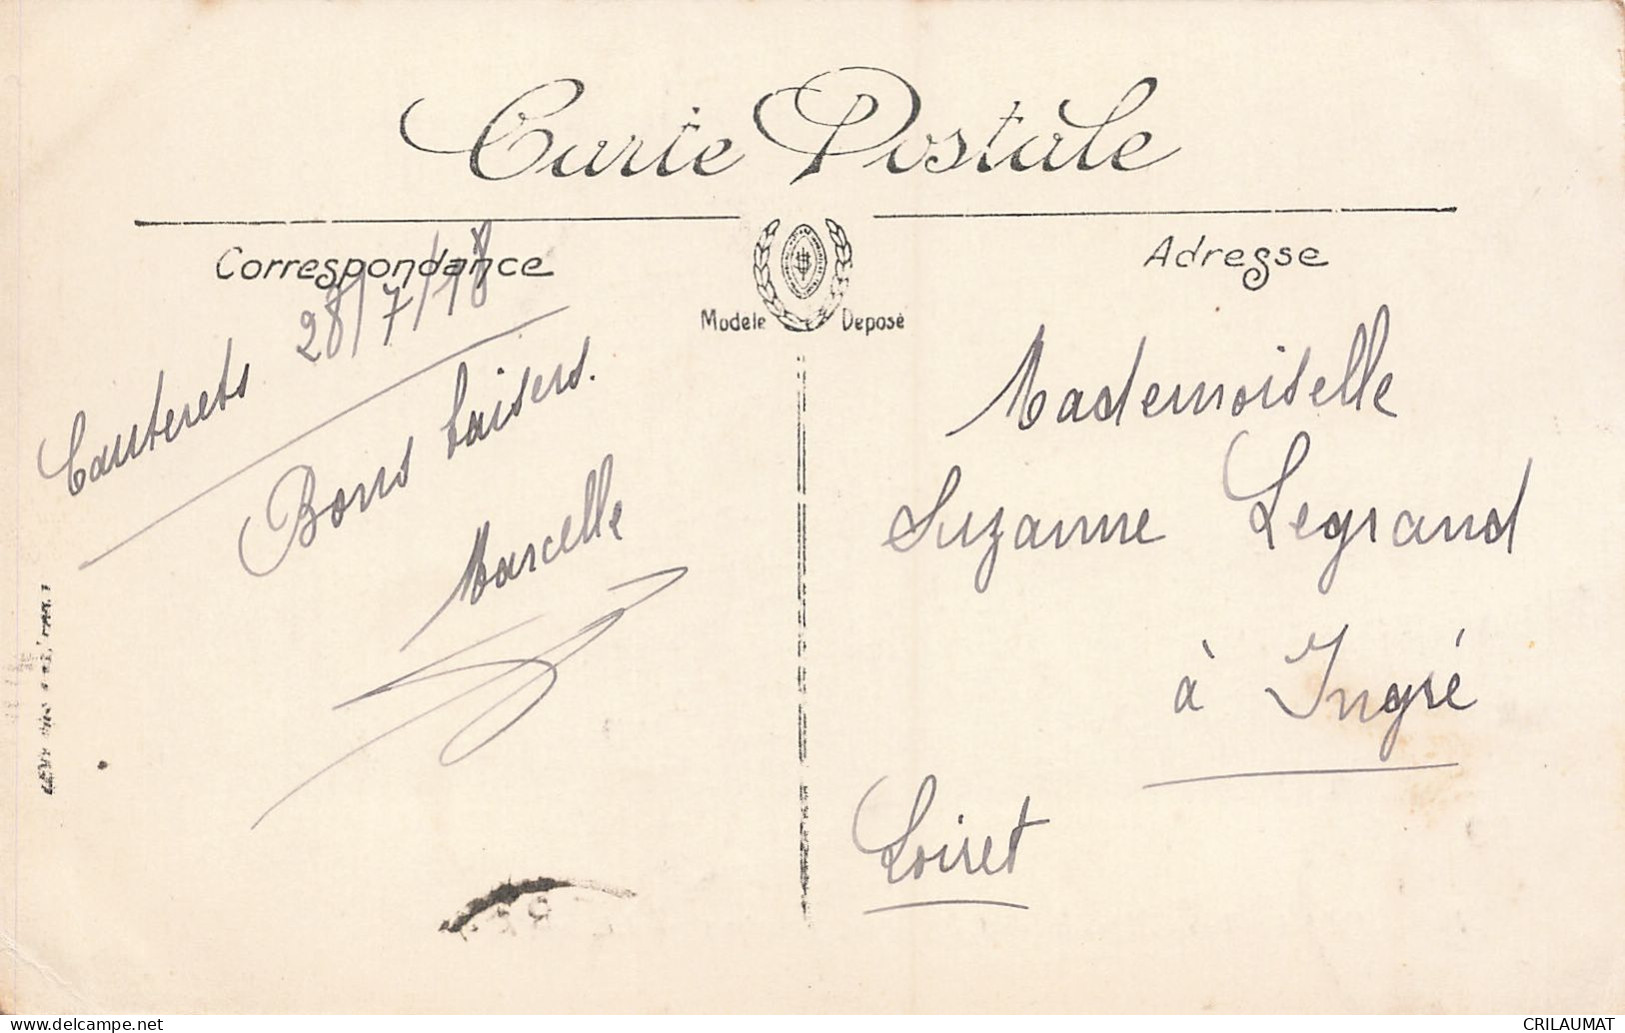 Carte Postale
Correspondance
Adresse
Modele Deposé
Cauterets 28/7/18
Bons baisers.
Marcelle
Mademoiselle
Suzanne Legrand
à Ingré
Loiret
www.delcampe.net
CRILAUMAT